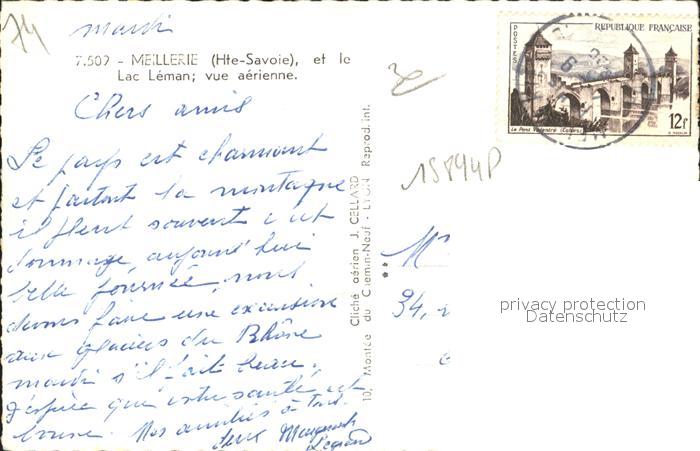 74
mardi
7.509 - MEILLERIE (Hte-Savoie), et le
Lac Léman; vue aérienne.
Chers amis
Le pays est charmant
et partout la montagne
il pleut souvent c'est
dommage, aujourd'hui
belle journée, nous
devons faire une excursion
aux glaciers du Rhône
mardi s'il fait beau.
J'espère que votre santé est
bonne. Nos amitiés à tous
deux
Cliché aérien J. CELLARD
10, Montée du Chemin-Neuf - LYON Reprod. int.
POSTES
REPUBLIQUE FRANÇAISE
Le Pont Valentré (Cahors)
12f
15894P
M
94,
privacy protection
Datenschutz